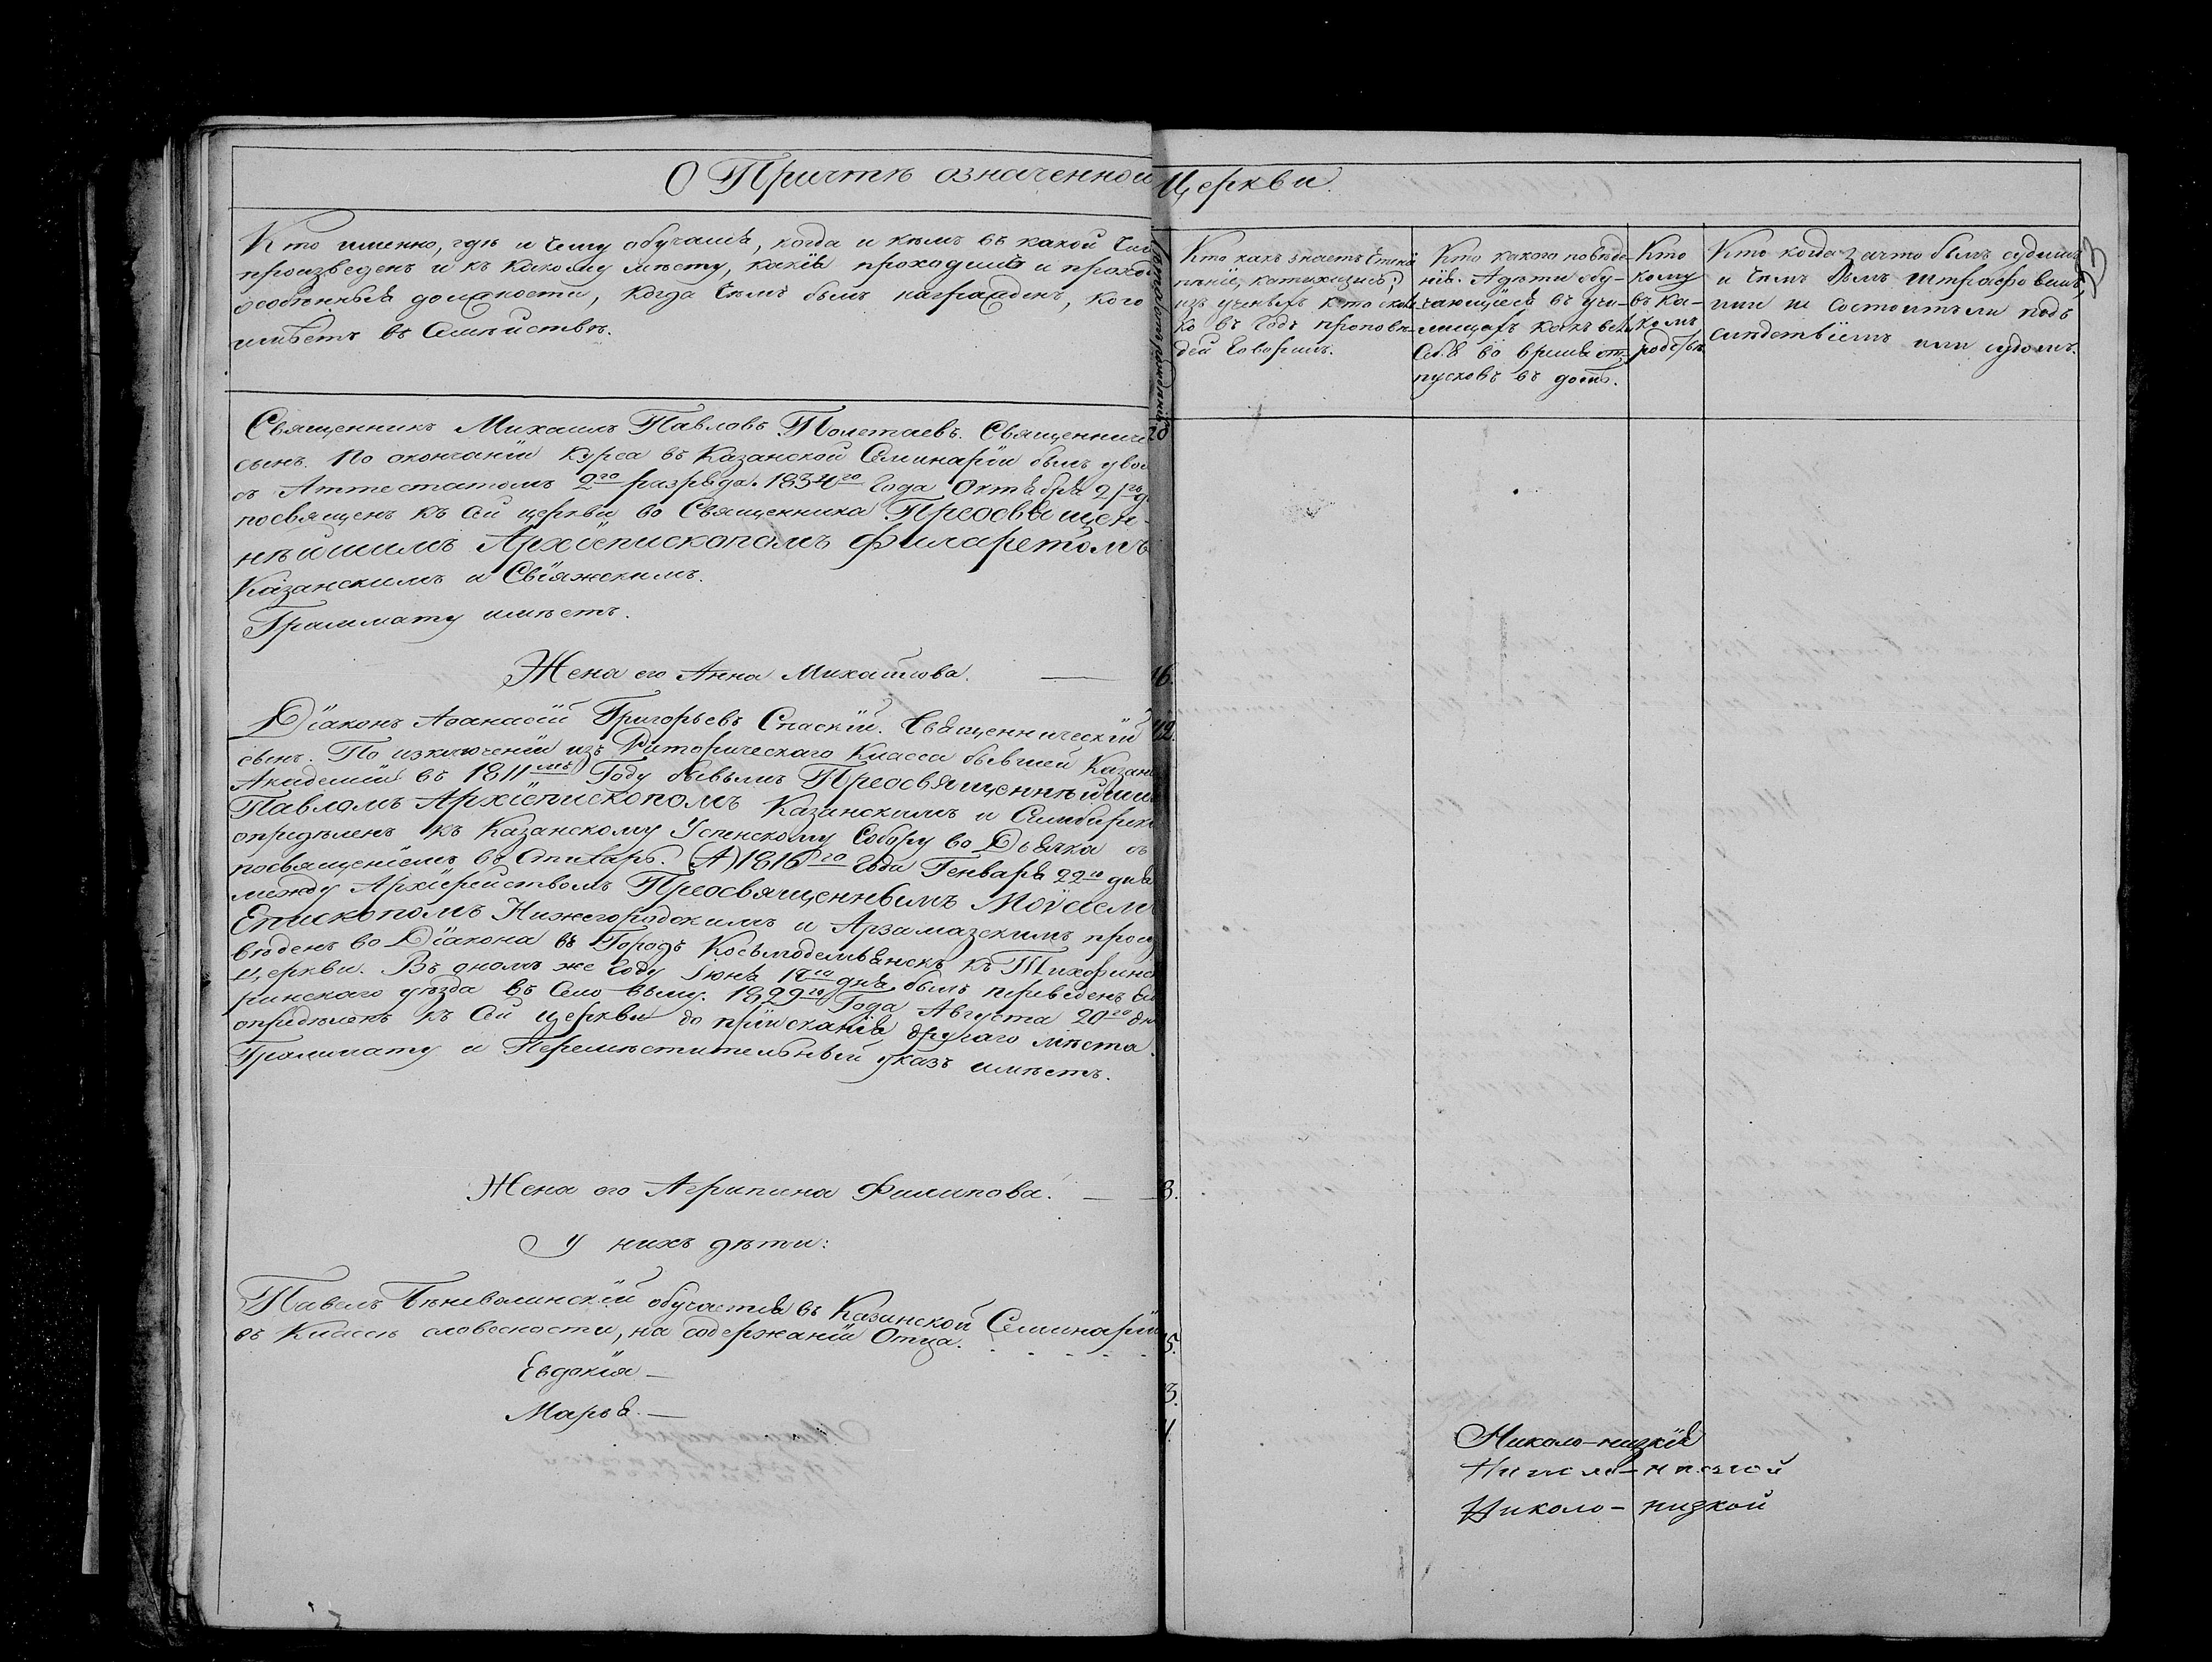 О Причтѣ означенной Церкви.
Кто именно, гдѣ и чему обучался, когда и кѣмъ въ какой
произведенъ и къ какому мѣсту, какія проходилъ и
особенныя должности, когда чѣмъ былъ награжденъ, кого
имѣетъ въ Семействѣ.
Кто какъ знаетъ
пѣніе, катихизисъ;
изъ ученыхъ кто сколь-
ко въ годъ проповѣ-
дей говорилъ.
Кто какого поведе-
нія. А дѣти обу-
чающіеся въ учи-
лищахъ какъ вели
себя во время от-
пусковъ въ домъ.
Кто
кому
въ ка-
комъ
родствѣ
Кто когда за что былъ судимъ
и чѣмъ былъ штрафованъ,
или не состоитъ ли подъ
слѣдствіемъ или судомъ.
Священникъ Михаилъ Павловъ Полетаевъ.
сынъ. По окончаніи Курса въ Казанской Семинаріи былъ
съ Аттестатомъ 2го разряда. 1834го Года Октября
посвященъ къ сей церкви во Священника Преосвящен-
нѣйшимъ Архіепископомъ Филаретомъ
Казанскимъ и Свіяжскимъ.
Граммату имѣетъ.
Жена его Анна Михайлова.
Діаконъ Аѳанасій Григорьевъ Спаскій. Священническій
сынъ. По изключеніи изъ Риторическаго Класса бывшей
Академіи въ 1811мъ Году бывымъ
Павломъ Архіепископомъ Казанскимъ и
опредѣленъ къ Казанскому Успенскому Собору во Дьячка съ
посвященіемъ въ Стихарь. (А) 1816го Года Генваря 22го дня
между Архіерействомъ Преосвященнымъ
Епископомъ Нижегородскимъ и Арзамазскимъ произ
веденъ во Діакона въ Городъ Косьмодемьянскъ къ
церкви. Въ ономъ же Году Іюня дня былъ переведенъ
уѣзда въ Село 1829го Года Августа 20го
опредѣленъ къ сей церкви до пріисканія другаго мѣста.
Граммату и Перемѣстительный указъ имѣетъ.
Жена его Агрипина Филипова.
У нихъ дѣти:
Павелъ обучается въ Казанской
въ Классѣ словесности, на содержаніи Отца.
Евдокія
Марья.
Николо-низкія
Николо-низкой
Николо-низкой